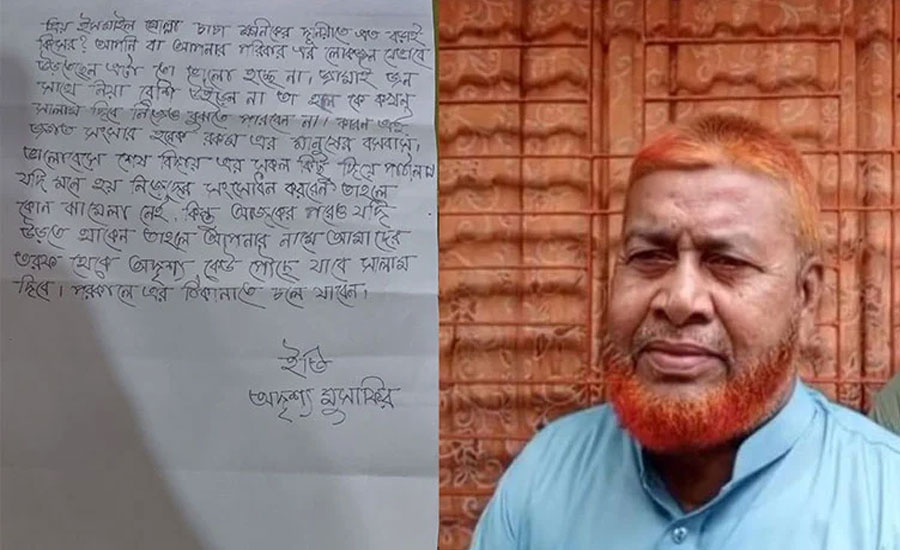 প্রিয় ইসমাইল মোল্লা চাচা ক্ষনিকের দুনিয়াতে এত বরাই
কিসের? আপনি বা আপনার পরিবার এর লোকজন যেভাবে
উড়তেছেন এটা তো ভালো হচ্ছে না, জামাই জন
সাথে নিয়া বেশি উইড়েন না তা হলে কে কখন
সালাম দিবে নিজেও বুঝতে পারবেন না। কারন এই
জগত সংসারে হরেক রকম এর মানুষের বসবাস,
ভালোবেসে শেষ বিদায় এর সকল কিছু দিয়ে পাঠালাম
যদি মনে হয় নিজেদের সংসোধন করবেন তাহলে
কোন ঝামেলা নেই, কিন্তু আজকের পরেও যদি
উড়তে থাকেন তাহলে আপনার নামে আমাদের
তরফ থেকে অদৃশ্য কেউ পৌছে যাবে সালাম
দিবে। পরকালে এর ঠিকানাতে চলে যাবেন।
ইতি
অদৃশ্য মুসাফির